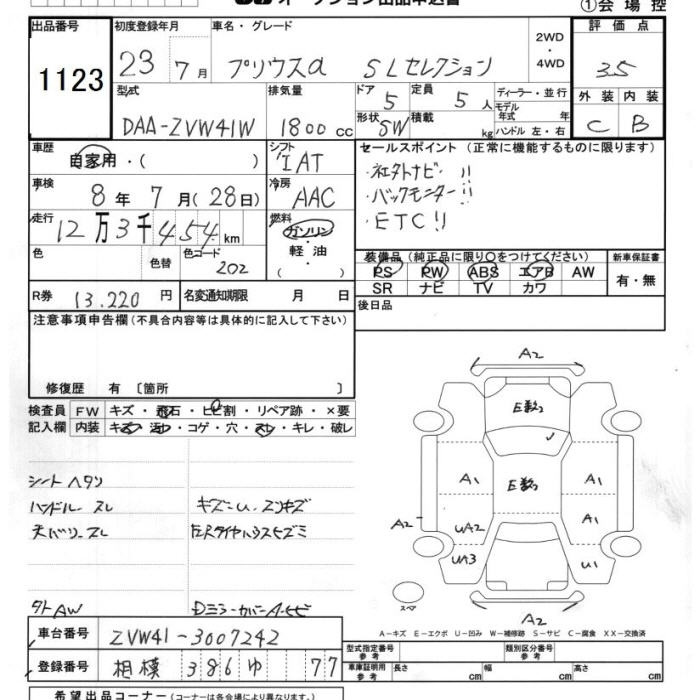 オークション出品申込書
①会場控
出品番号 1123
初度登録年月 23 7月
車名・グレード プリウスα SLセレクション
2WD・4WD
評価点 3.5
外装 C 内装 B
型式 DAA-ZVW41W
排気量 1800 cc
ドア 5 定員 5人
ディーラー・並行
形状 SW 積載 kg
モデル年式 年式
ハンドル 左・右
車歴 自家用・( )
シフト IAT
セールスポイント (正常に機能するものに限ります)
・社外ナビ!!
・バックモニター!!
・ETC!!
車検 8年 7月(28日)
冷房 AAC
走行 12万3千454km
燃料 ガソリン・軽油
色 色替 色コード 202
装備品(純正品に限り○をつけてください)
新車保証書 有・無
PS PW ABS エアB AW
SR ナビ TV カワ
R券 13,220円 名変通知期限 月 日
後日品
注意事項申告欄(不具合内容等は具体的に記入して下さい)
修復歴 有 〔箇所 〕
検査員 FW キズ・飛石・ヒビ割・リペア跡・×要
記入欄 内装 キズ・汚れ・コゲ・穴・スレ・キレ・破レ
シートヘタリ
ハンドルスレ キズ
天バリースレ
タトAW Dミラーカバー
A2
E数2
A1 E数2 A1
A2 UA2 A1
UA3 U1
スペア A2
A-キズ E-エクボ U-凹み W-補修跡 S-サビ C-腐食 XX-交換済
車台番号 ZVW41-3007242
登録番号 相模 386 ゆ 77
型式指定番号 参考 類別区分番号 参考
車庫証明用 参考 長さ cm 幅 cm 高さ cm
希望出品コーナー(コーナーは各会場により異なります。)